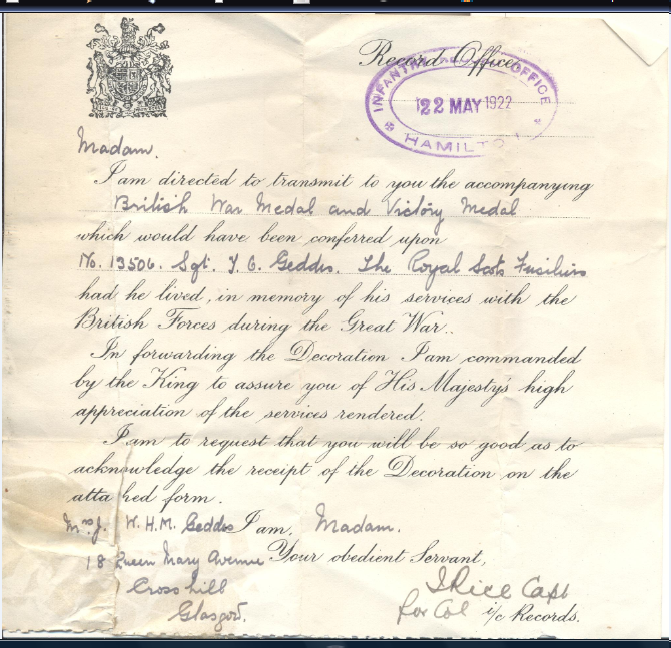 Record Office,
INFANTRY OFFICE
22 MAY 1922
HAMILTON
Madam.
I am directed to transmit to you the accompanying
British War Medal and Victory Medal
which would have been conferred upon
No. 13506. Sgt. J. C. Geddes. The Royal Scots Fusiliers
had he lived, in memory of his services with the
British Forces during the Great War..
In forwarding the Decoration I am commanded
by the King to assure you of His Majesty's high
appreciation of the services rendered.
I am to request that you will be so good as to
acknowledge the receipt of the Decoration on the
atta hed form.
I am, Madam.
Your obedient Servant,
Capt
for Col i/c Records.
Mrs J. W. H. M. Geddes
18 Queen Mary Avenue
Crosshill
Glasgow.